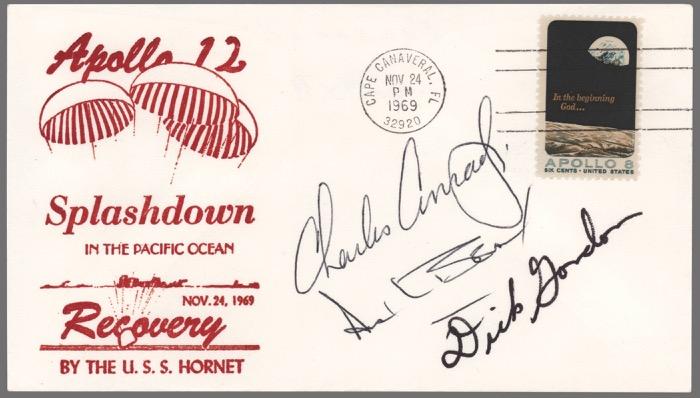 Apollo 12
Splashdown
IN THE PACIFIC OCEAN
NOV. 24, 1969
Recovery
BY THE U. S. S. HORNET
CAPE CANAVERAL, FL
NOV 24
PM
1969
32920
In the beginning
God...
APOLLO 8
SIX CENTS · UNITED STATES
Charles Conrad Jr.
Alan L Bean
Dick Gordon